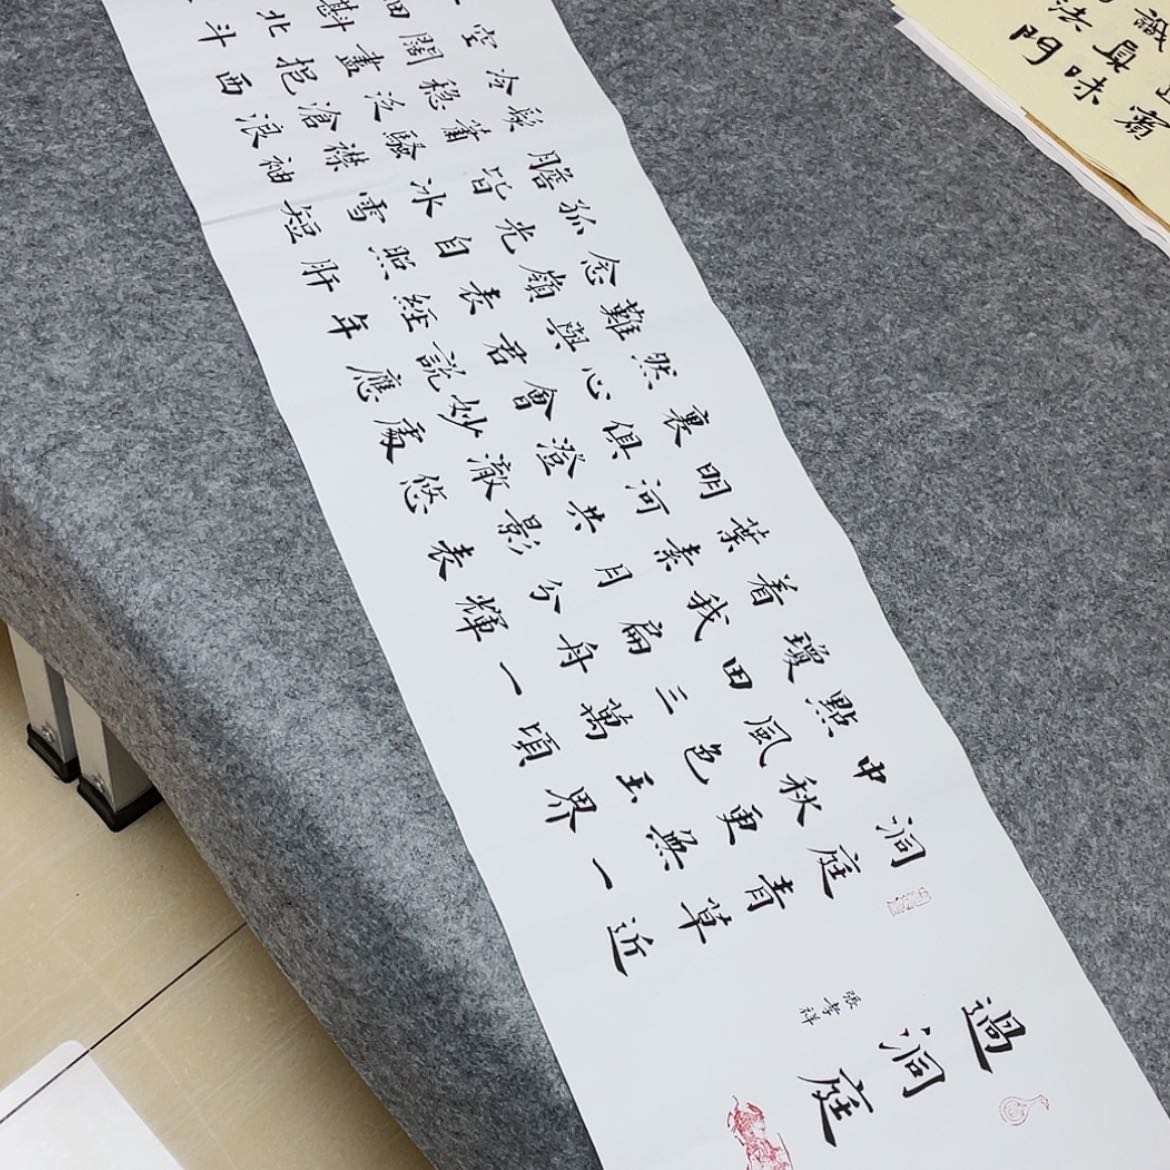 過洞庭
張孝祥
洞庭青草近
中秋更無一
點風色玉界
瓊田三萬頃
着我扁舟一
葉素月分輝
明河共影表
裏俱澄澈悠
然心會妙處
難與君說應
念嶺表經年
孤光自照肝
膽皆冰雪短
髮蕭騷襟袖
冷穩泛滄浪
空闊盡挹西
細斟北斗
賓
識真味
法門